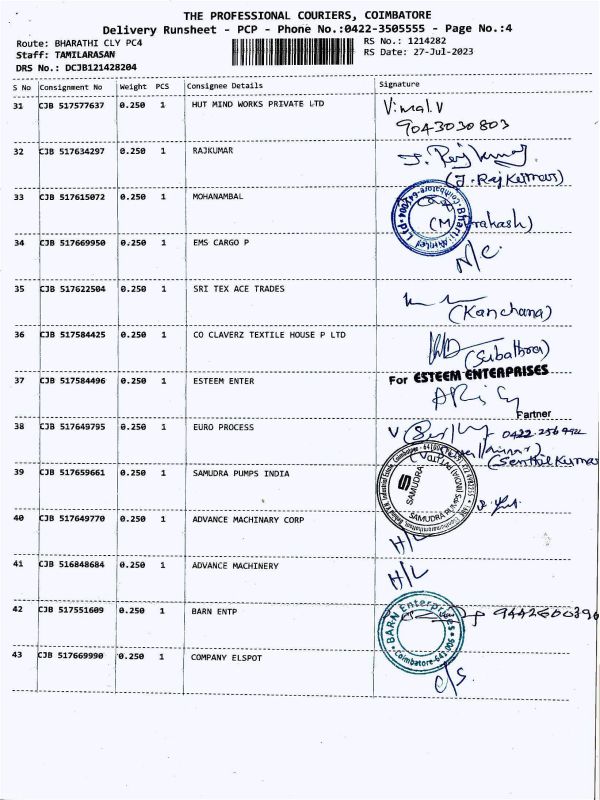 THE PROFESSIONAL COURIERS, COIMBATORE
Delivery Runsheet - PCP - Phone No.:0422-3505555 - Page No.:4
Route: BHARATHI CLY PC4
RS No.: 1214282
Staff: TAMILARASAN
RS Date: 27-Jul-2023
DRS No.: DCJB121428204
S No Consignment No Weight PCS Consignee Details Signature
31 CJB 517577637 0.250 1 HUT MIND WORKS PRIVATE LTD Vimal.V
9043030803
32 CJB 517634297 0.250 1 RAJKUMAR J. Rajkumar
(J. Raj Kumar)
33 CJB 517615072 0.250 1 MOHANAMBAL
(M Prakash)
34 CJB 517669950 0.250 1 EMS CARGO P N/C
35 CJB 517622504 0.250 1 SRI TEX ACE TRADES
(Kanchana)
36 CJB 517584425 0.250 1 CO CLAVERZ TEXTILE HOUSE P LTD
(Subathra)
For ESTEEM ENTERPRISES
37 CJB 517584496 0.250 1 ESTEEM ENTER
Partner
38 CJB 517649795 0.250 1 EURO PROCESS
(Senthil Kumar
39 CJB 517659661 0.250 1 SAMUDRA PUMPS INDIA
SAMUDRA
40 CJB 517649770 0.250 1 ADVANCE MACHINARY CORP H/L
41 CJB 516848684 0.250 1 ADVANCE MACHINERY H/L
42 CJB 517551609 0.250 1 BARN ENTP 9442600396
BARN Enterprises
Coimbatore-641 006
43 CJB 517669990 0.250 1 COMPANY ELSPOT C/S.